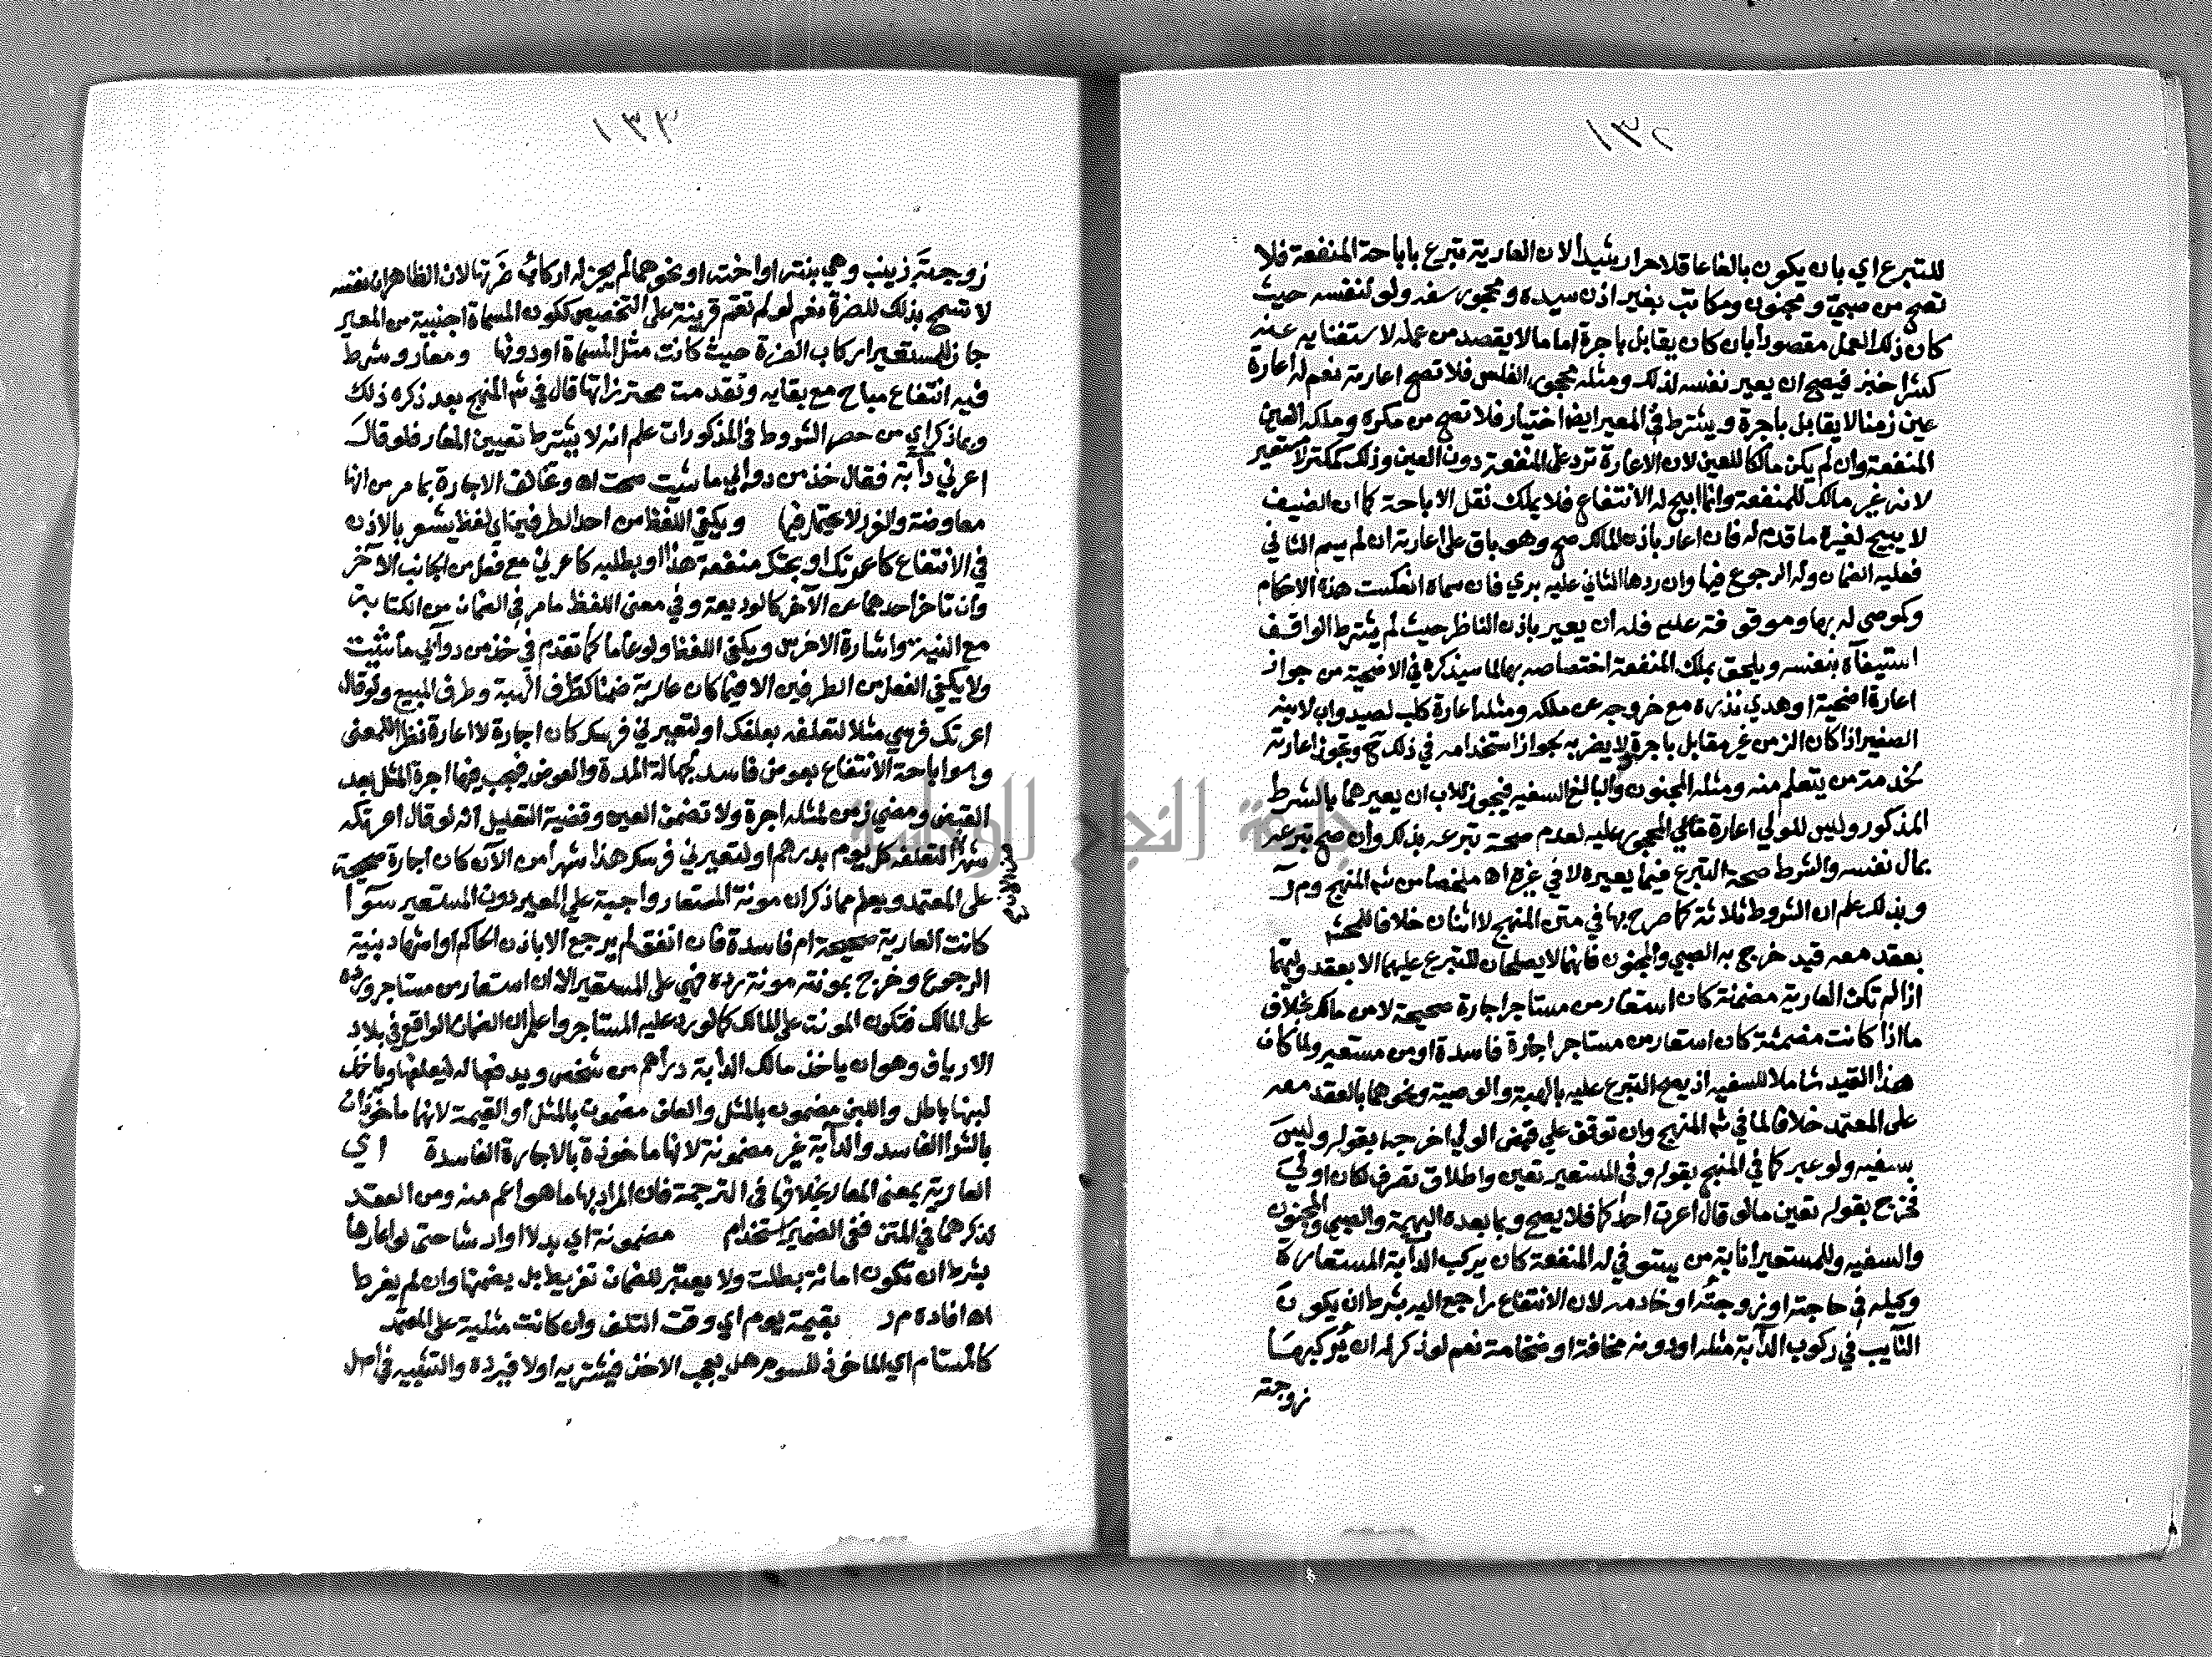 ١٣٢
للتبرع اي بان يكون بالغا عاقلا حرا رشيدا لان العارية تبرع باباحة المنفعة فلا
تصح من صبي ومجنون ومكاتب بغير اذن سيده ومحجور سفه ولو لنفسه حيث
كان ذلك العمل مقصودا بان كان يقابل باجرة اما ما لا يقصد من عمله لاستغنايه عنه
فيصح ان يعير نفسه لذلك ومثله محجور الفلس فلا تصح اعارته نعم له اعارة
عين زمنا لا يقابل باجرة ويشترط في المعير ايضا اختيار فلا تصح من مكره وملكه
المنفعة وان لم يكن مالكا للعين لان الاعارة ترد على المنفعة دون العين وذلك كمكتر لا مستعير
لانه غير مالك للمنفعة وانما ابيح له الانتفاع فلا يملك نقل الاباحة كما ان الضيف
لا يبيح لغيره ما قدم له فان اعار باذن المالك صح وهو باق على اعارته ان لم يسم الثاني
فعليه الضمان وله الرجوع فيها وان ردها الثاني عليه بري فان سماه انعكست هذه الاحكام
وكموصى له بها وموقوفة عليه فله ان يعير باذن الناظر حيث لم يشترط الواقف
استيفآه بنفسه ويلحق بملك المنفعة اختصاصه بها لما سيذكره في الاضحية من جواز
اعارة اضحية او هدي نذره مع خروجه عن ملكه ومثله اعارة كلب لصيد واب لابنه
الصغير اذا كان الزمن غير مقابل باجرة ولا يضر به لجواز استخدامه في ذلك وتجوز اعارته
لخدمة من يتعلم منه ومثله المجنون والبالغ السفيه فيجوز للاب ان يعيرهما بالشرط
المذكور وليس للولي اعارة مال المحجور عليه لعدم صحة تبرعه بذلك وان صح تبرعه
بمال نفسه والشرط صحة التبرع فيما يعيره لا في غيره اه ملخصا من شم المنهج وم ر
وبذلك علم ان الشروط ثلاثة كما صرح بها في متن المنهج لا اثنان خلافا للمحشي
بعقد معه قيد خرج به الصبي والمجنون فانهما لا يصلحان للتبرع عليهما الا بعقد وليهما
اذا لم تكن العارية مضمنة كان استعار من مستاجر اجارة صحيحة لا من مالك بخلاف
ما اذا كانت مضمنة كان استعار من مستاجر اجارة فاسدة او من مستعير ولما كان
هذا القيد شاملا للسفيه اذ يصح التبرع عليه بالهبة والوصية ونحوهما بالعقد معه
على المعتمد خلافا لما في شم المنهج وان توقف على قبض الولي اخرجه بقوله وليس
بسفيه ولو عبر كما في المنهج بقوله وفي المستعير تعين واطلاق تصرف لكان اولى
فخرج بقوله تعين ما لو قال اعرت احدكما فلا يصح وبما بعده البهيمة والصبي والمجنون
والسفيه وللمستعير انابة من يستوفي له المنفعة كان يركب الدآبة المستعارة
وكيله في حاجته او زوجته او خادمه لان الانتفاع راجع اليه بشرط ان يكون
النآيب في ركوب الدآبة مثله او دونه نحافة او ضخامة نعم لو ذكر له ان يركبها
زوجته
١٣٣
زوجته زينب وهي بنته او اخته او نحوهما لم يجز له اركاب ضرتها لان الظاهر ان نفسه
لا تسمح بذلك للضرة نعم لو لم تقم قرينة على التخصيص ككون المسماة اجنبية من المعير
جاز للمستعير اركاب الضرة حيث كانت مثل المسماة او دونها ومعار وشرط
فيه انتفاع مباح مع بقايه وتقدمت محترزاتها قال في شم المنهج بعد ذكره ذلك
وبما ذكر اي من حصر الشروط في المذكورات علم انه لا يشترط تعيين المعار فلو قال
اعرني دآبة فقال خذ من دوآبي ما شيت صحت اه وتخالف الاجارة بما مر من انها
معاوضة والغرر لا يحتمل فيها ويكفي اللفظ من احد الطرفين اي لفظ يشعر بالاذن
في الانتفاع كاعرتك او بحتك منفعة هذا او بطلبه كاعرني مع فعل من الجانب الآخر
وان تاخر احدهما عن الآخر كالوديعة وفي معنى اللفظ ما مر في الضمان من الكتابة
مع النية واشارة الاخرس ويكفي اللفظ ولو عاما كما تقدم في خذ من دوآبي ما شيت
ولا يكفي الفعل من الطرفين الا فيما كان عارية ضمنا كظرف الهبة وظرف المبيع ولو قال
اعرتك فرسي مثلا لتعلفه بعلفك او لتعيرني فرسك كان اجارة لا اعارة نظرا للمعنى
واباحة الانتفاع بعوض فاسد لجهالة المدة والعوض فيجب فيها اجرة المثل بعد
القبض ومضي زمن لمثله اجرة ولا تضمن العين وقضية التعليل انه لو قال اعرتكه
شهرا لتعلفه كل يوم بدرهم او لتعيرني فرسك هذا شهرا من الآن كان اجارة صحيحة
على المعتمد ويعلم مما ذكر ان مونة المستعار واجبة على المعير دون المستعير سوآ ا
كانت العارية صحيحة ام فاسدة فان انفق لم يرجع الا باذن الحاكم او اشهاد بنية
الرجوع وخرج بمونته مونة رده فهي على المستعير الا ان استعار من مستاجر ورده
على المالك فتكون المونة على المالك كما لو رد عليه المستاجر واعلم ان الضمان الواقع في بلاد
الارياف وهو ان ياخذ مالك الدآبة دراهم من شخص ويدفعها له ليعلفها وياخذ
لبنها باطل واللبن مضمون بالمثل والعلف مضمون بالمثل او القيمة لانهما ماخوذان
بالشرا الفاسد والدآبة غير مضمونة لانها ماخوذة بالاجارة الفاسدة اي
العارية بمعنى المعار بخلافها في الترجمة فان المراد بها ما هو اعم منه ومن العقد
بذكرهما في المتن ففي الضمير استخدام مضمونة اي بدلا او ارشا حتى لو اعارها
بشرط ان تكون امانة بطلت ولا يعتبر للضمان تفريط بل يضمنها وان لم يفرط
اه افاده م ر بقيمة يوم اي وقت التلف وان كانت مثلية على المعتمد
كالمستام اي الماخوذ للسوم هل يعجب الاخذ فيشتريه او لا فيرده والتشبيه في اصل